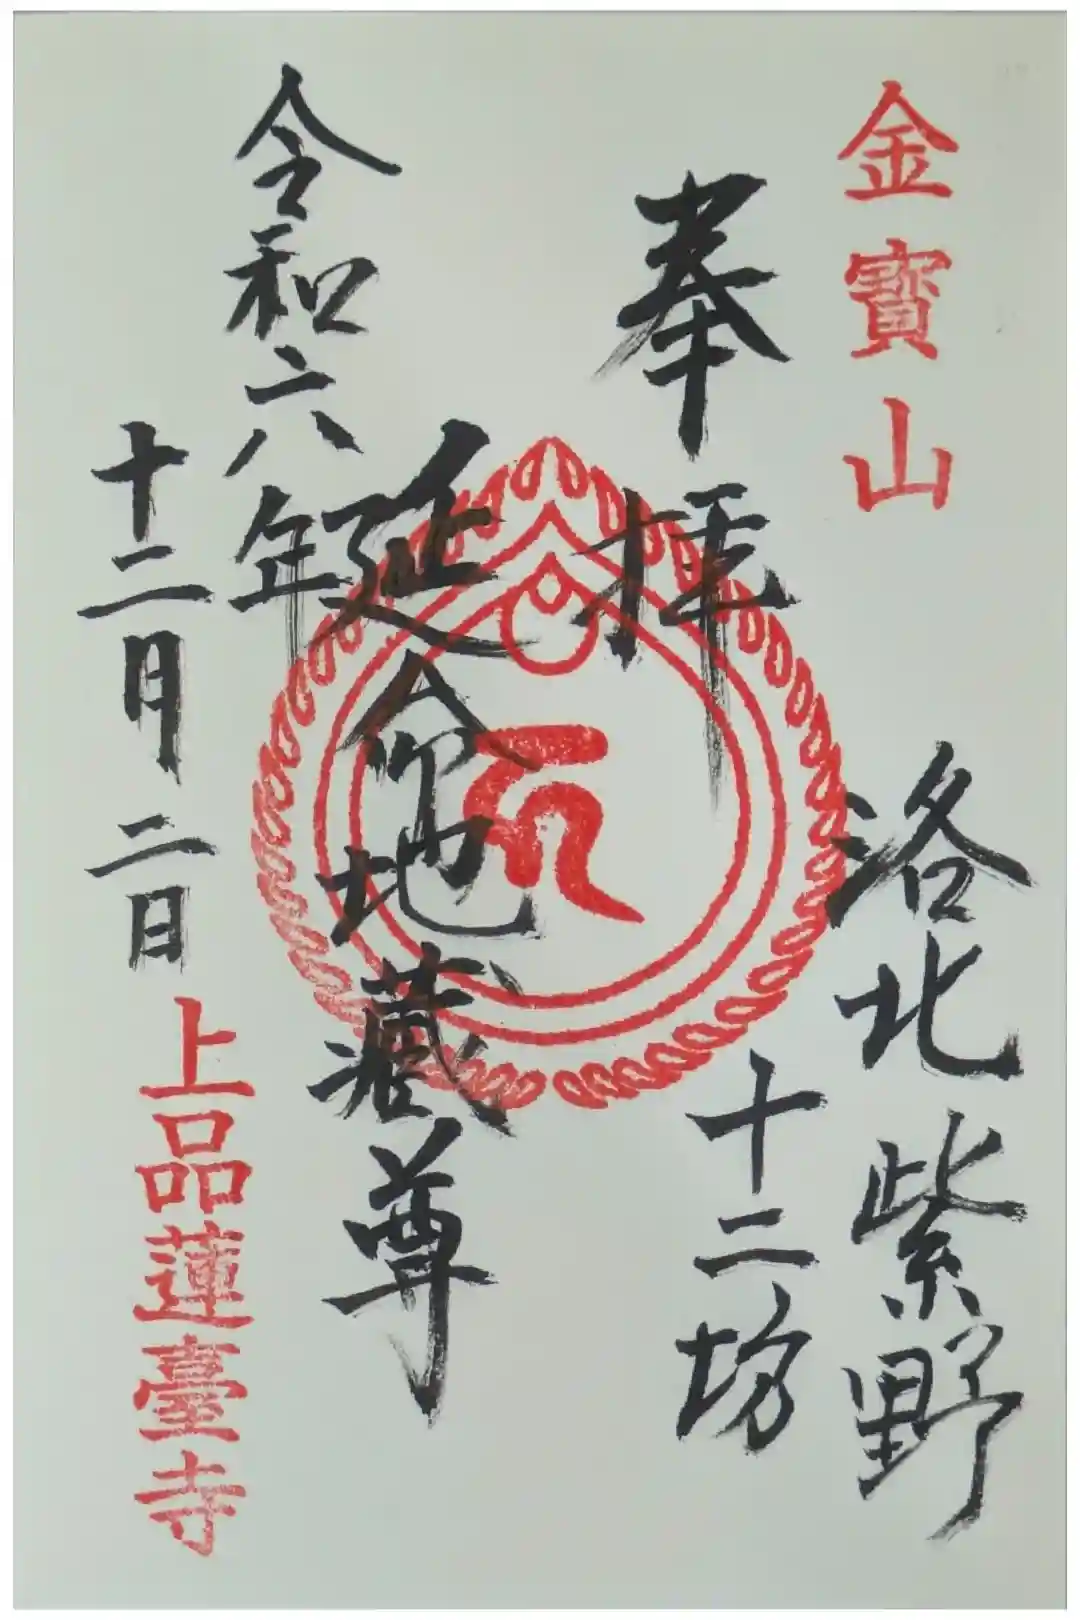 金寶山
洛北紫野
奉拝
十二坊
延命地藏尊
令和六年
十二月二日
上品蓮臺寺